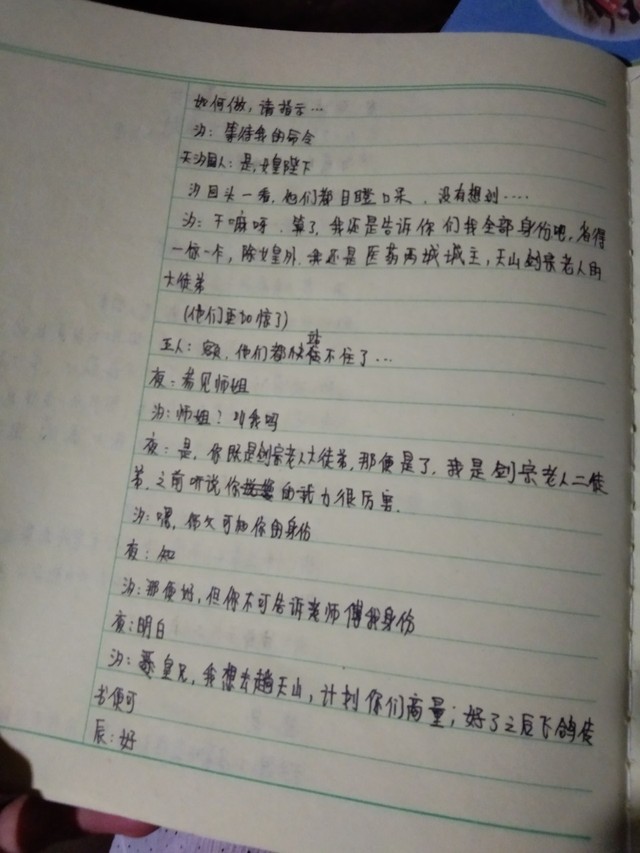 如何做，请指示…
汐：等待我的命令
天汐国人：是，女皇陛下
汐回头一看，他们都目瞪口呆，没有想到……
汐：干嘛呀，算了，我还是告诉你们我全部身份吧，省得
一惊一卡，除女皇外，我还是医药两城城主，天山剑宗老人的
大徒弟
(他们更加惊了)
五人：额，他们都快站不住了…
夜：参见师姐
汐：师姐？叫我吗
夜：是，你既是剑宗老人大徒弟，那便是了，我是剑宗老人二徒
弟，之前听说你的武力很厉害．
汐：嗯，你的身份
夜：知
汐：那便好，但你不可告诉老师傅我身份
夜：明白
汐：皇兄，我想去趟天山，计划你们商量；好了之后飞鸽传
书便可
辰：好